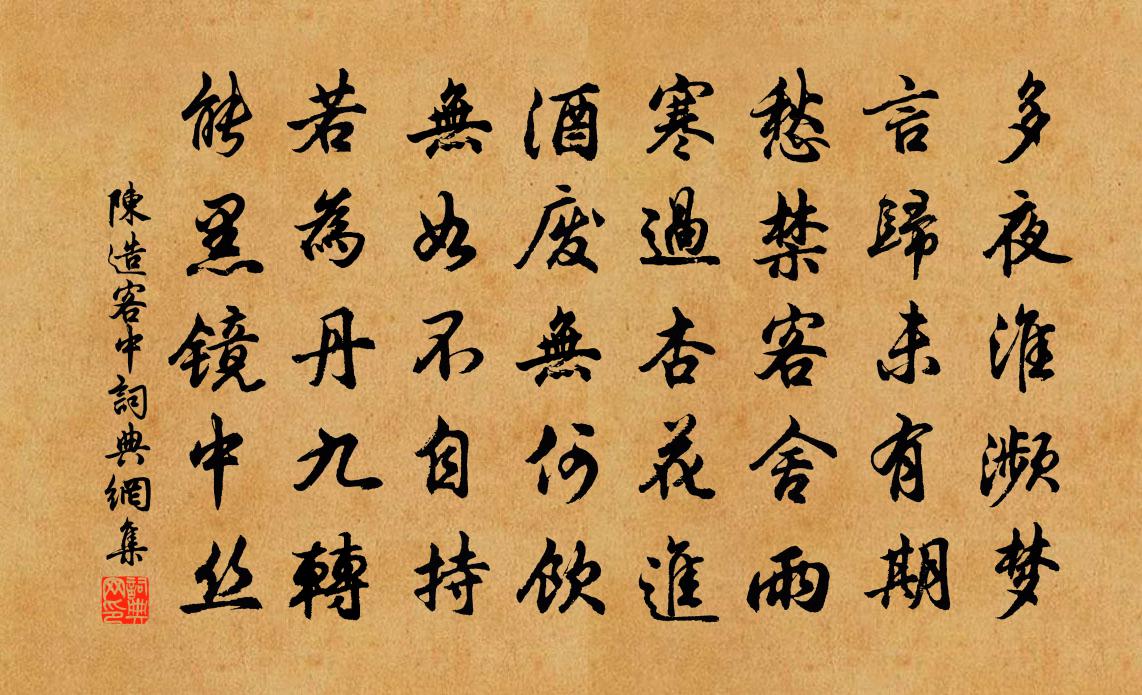 多夜淮瀕梦
言歸未有期
愁禁客舍雨
寒過杏花進
酒废無何飲
無如不自持
若為丹九轉
能黑鏡中丝
陳造客中詞典網集
詞典网印